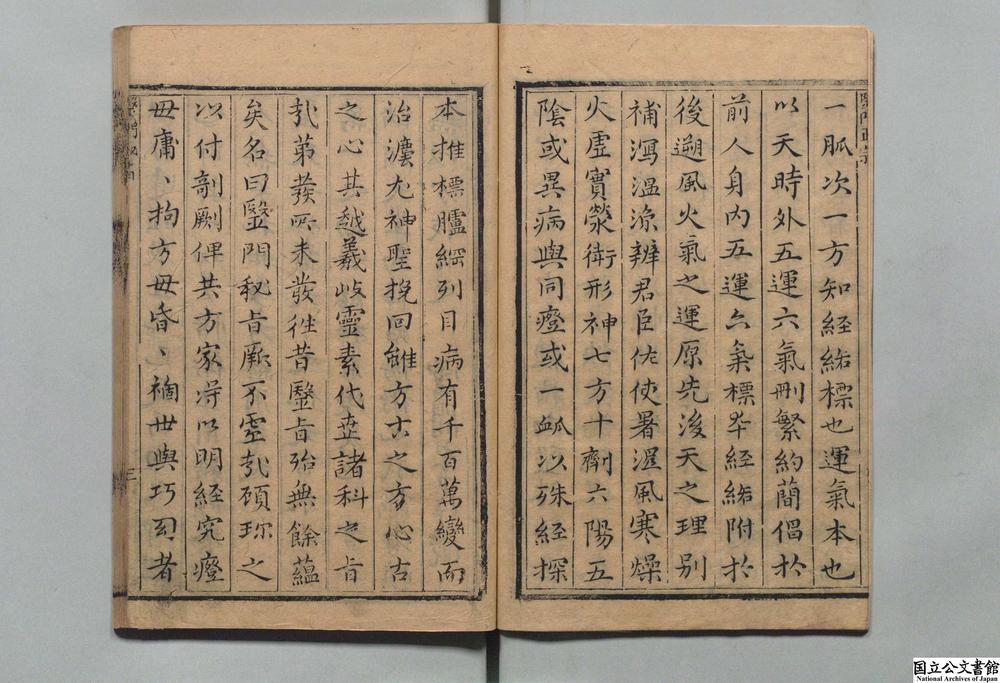 一脈次一方知経絡標也運氣本也
以天時外五運六氣刪繁約蕳倡扵
前人身内五運六氣標本経絡附扵
後遡風火氣之運原先後天之理别
補瀉温凉辨君臣佐使暑濕風寒燥
火虚實滎衛形神七方十劑六陽五
陰或異病與同癥或一脈以殊経探
本推標臚綱列目病有千百萬變而
治灋尤神聖挽回雖方古之方心古
之心其越義岐靈素代莖諸科之旨
㢤第𤼵所未發徃昔毉旨殆無餘蘊
矣名曰毉門秘旨厥不虚㢤碩珎之
以付剞劂俾共方家淂以明経究癥
毋庸、拘方毋昏、禍世與巧司者
國立公文書館
National Archives of Japan